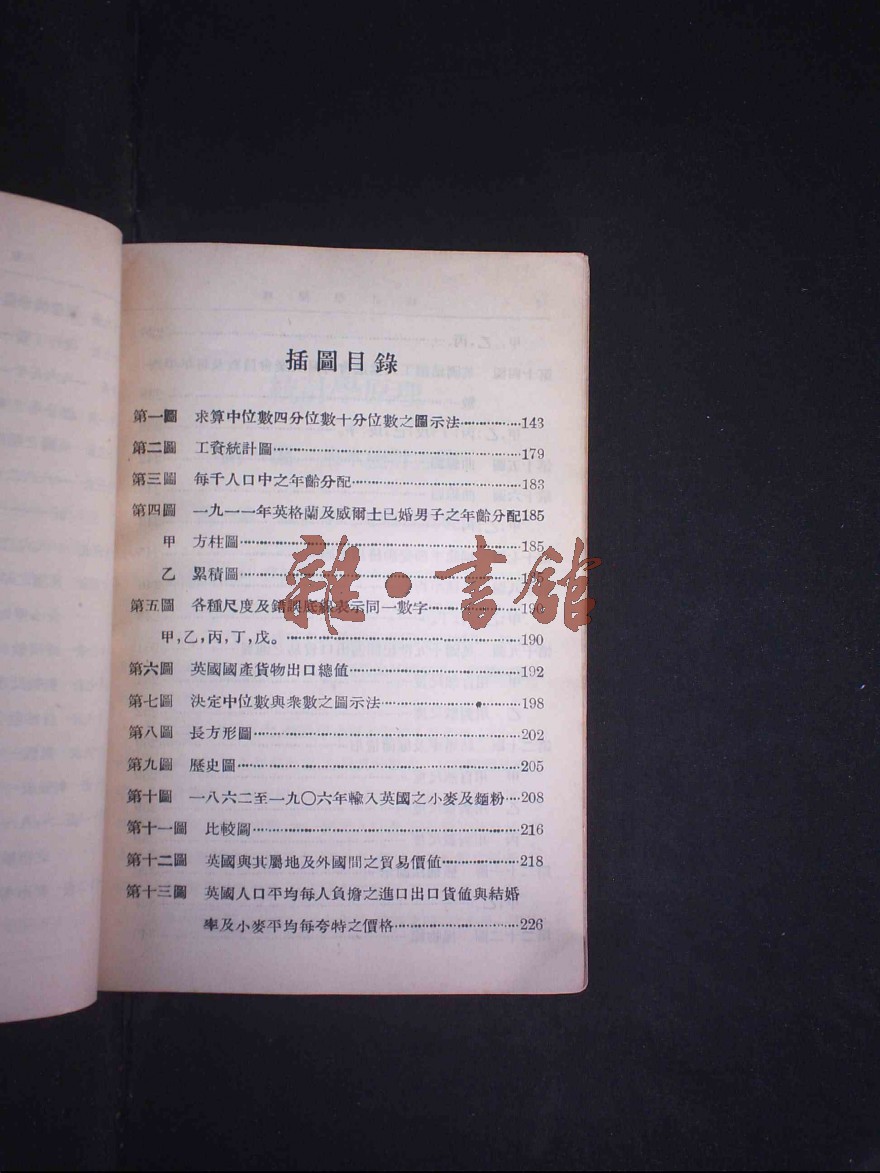 插圖目錄
第一圖 求算中位數四分位數十分位數之圖示法…………143
第二圖 工資統計圖…………179
第三圖 每千人口中之年齡分配…………183
第四圖 一九一一年英格蘭及威爾士已婚男子之年齡分配185
甲 方柱圖…………185
乙 累積圖…………185
第五圖 各種尺度及錯誤底線表示同一數字…………190
甲，乙，丙，丁，戊。…………190
第六圖 英國國產貨物出口總值…………192
第七圖 決定中位數與衆數之圖示法…………198
第八圖 長方形圖…………202
第九圖 歷史圖…………205
第十圖 一八六二至一九〇六年輸入英國之小麥及麵粉…208
第十一圖 比較圖…………216
第十二圖 英國與其屬地及外國間之貿易價値…………218
第十三圖 英國人口平均每人負擔之進口出口貨値與結婚
率及小麥平均每夸特之價格…………226
雜·書館